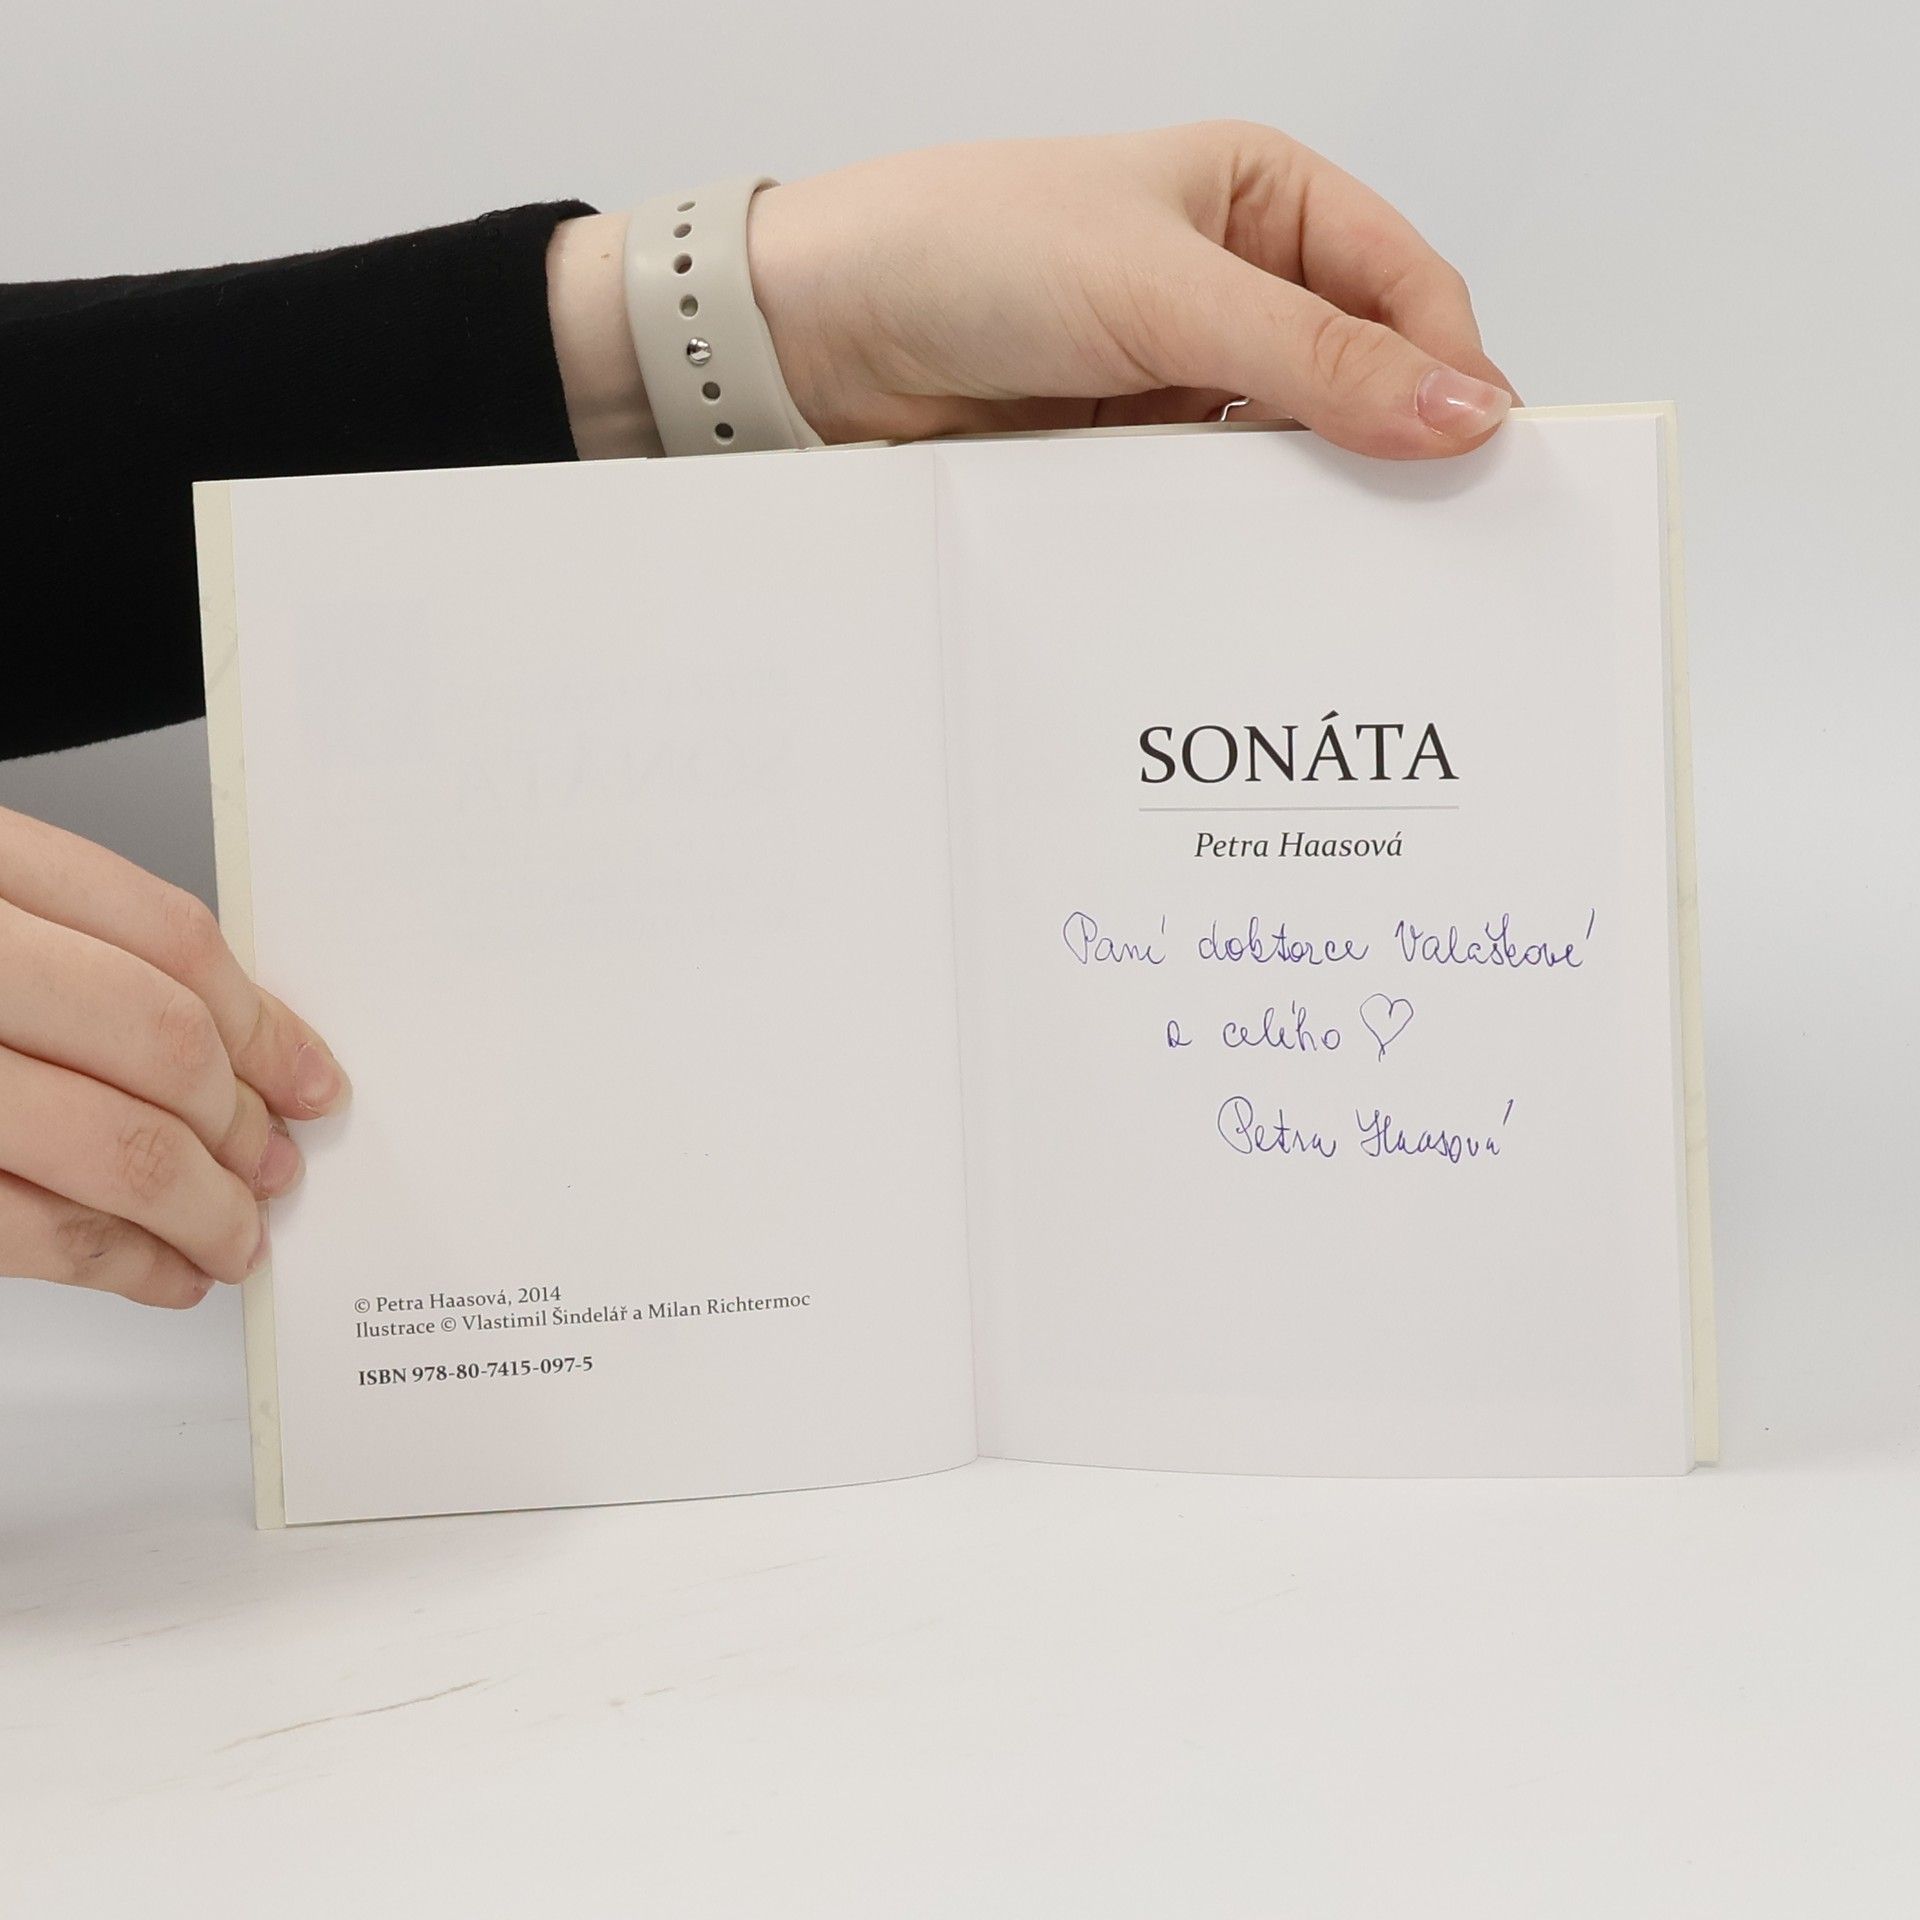 © Petra Haasová, 2014
Ilustrace © Vlastimil Šindelář a Milan Richtermoc
ISBN 978-80-7415-097-5
SONÁTA
Petra Haasová
Paní doktorce Valaškové
z celého ♡
Petra Haasová